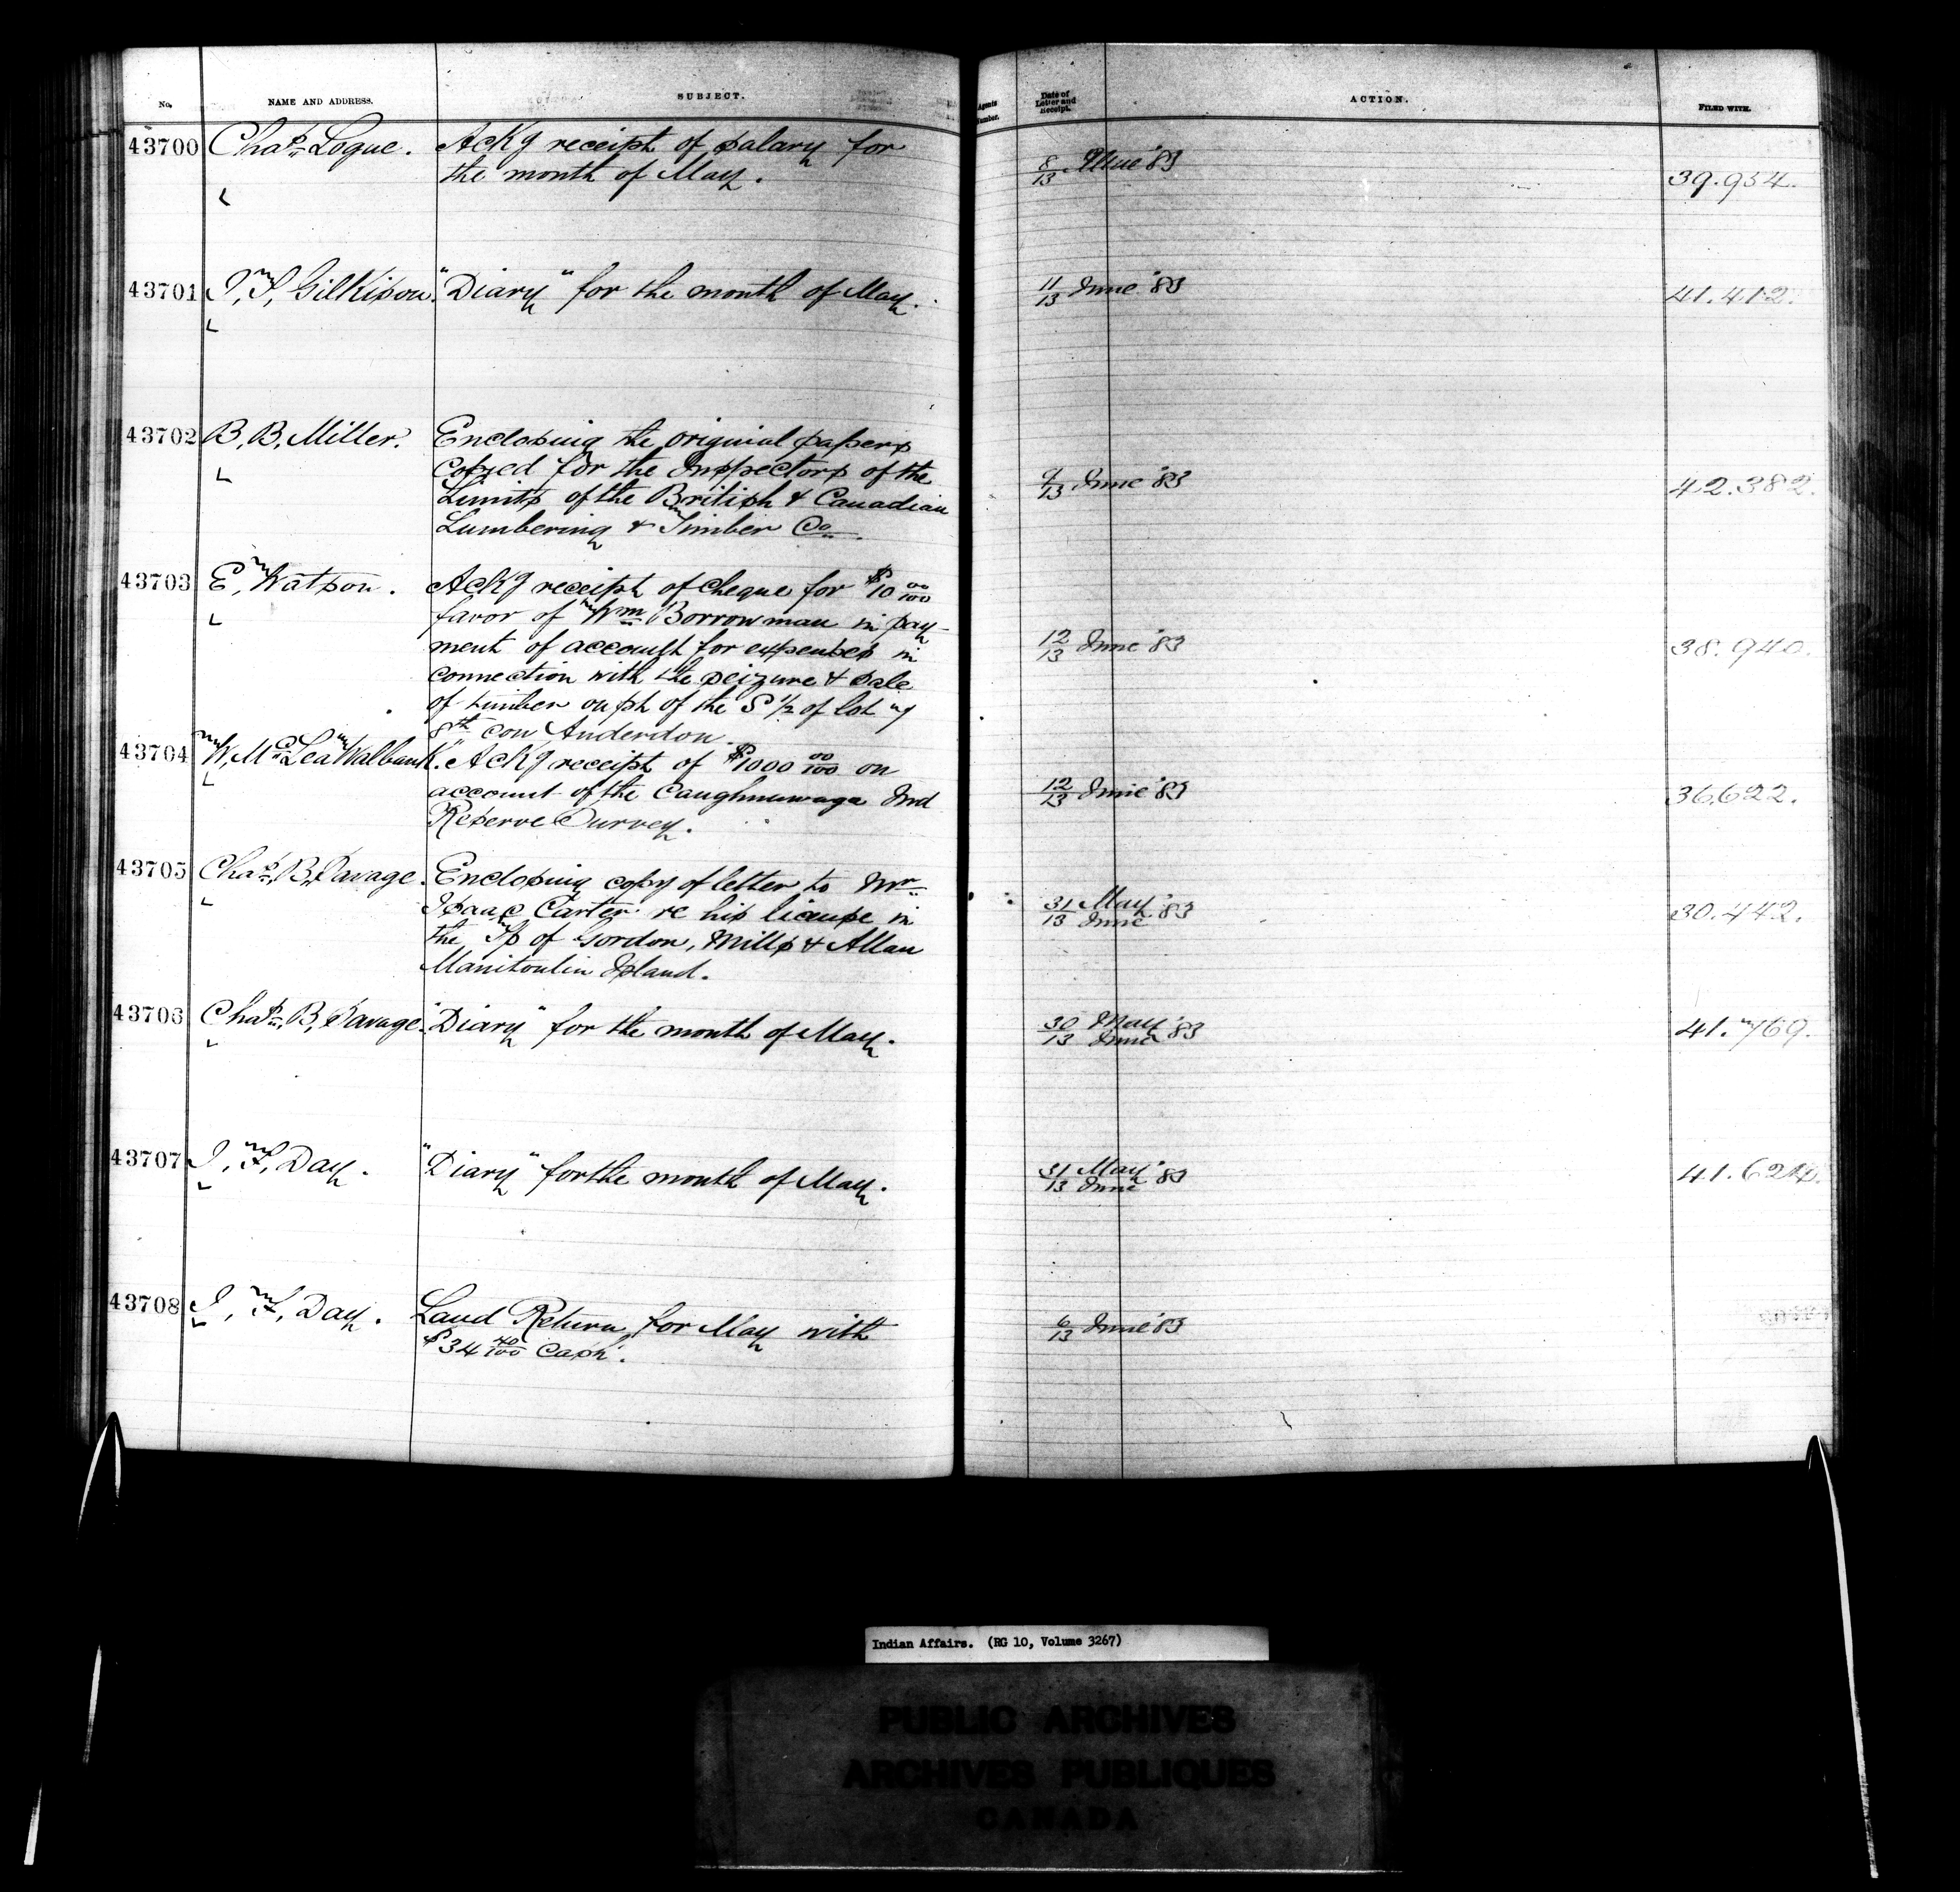 No. NAME AND ADDRESS. SUBJECT. Agents Number. Date of Letter and Receipt. ACTION. FILED WITH.
43700 Chas. Logue. Ackg receipt of salary for
the month of May. 8/13 June '83 39.954.
43701 J. T. Gilkison. "Diary" for the month of May. 11/13 June '83 41.412.
43702 B. B. Miller. Enclosing the original papers
copied for the Inspectors of the
Limits of the British & Canadian 9/13 June '83 42.382.
Lumbering & Timber Co.
43703 E. Watson. Ackg receipt of cheque for $10 00/100
favor of Wm Borrowman in pay-
ment of account for expenses in 12/13 June '83 38.940.
connection with the seizure & sale
of timber on pt of the S 1/2 of lot 7
8th con Anderdon.
43704 W. McLea Walbank. Ackg receipt of $1000 00/100 on
account of the Caughnawaga Ind 12/13 June '83 36,622.
Reserve Survey.
43705 Chas. B. Savage. Enclosing copy of letter to Mr
Isaac Carter re his license in 31 May/13 June '83 30.442.
the Tp of Gordon, Mills & Allan
Manitoulin Island.
43706 Chas. B. Savage. "Diary" for the month of May. 30 May/13 June '83 41.769.
43707 J. F. Day. "Diary" for the month of May. 31 May/13 June '83
43708 J. F. Day. Land Return for May with 6/13 June '83
$34 40/100 Cash.
Indian Affairs. (RG 10, Volume 3267)
PUBLIC ARCHIVES
ARCHIVES PUBLIQUES
CANADA